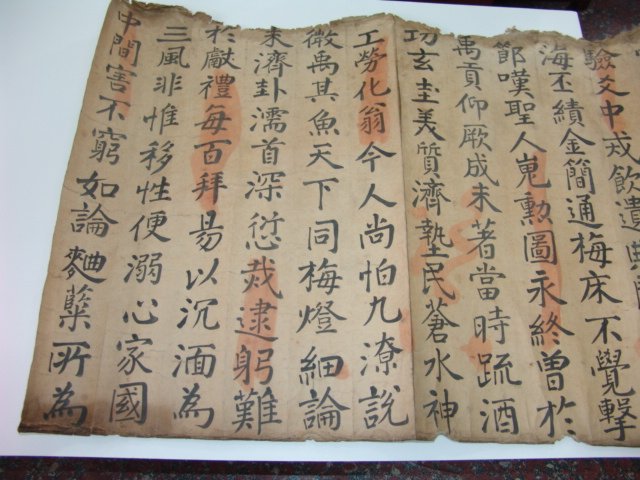 驗爻中戎飲遺
海丕績金簡通梅床不覺擊
節嘆聖人嵬勳圖永終曾於
禹貢仰厥成未著當時疏酒
功玄圭美質濟墊民蒼水神
工勞化翁今人尚怕九潦說
微禹其魚天下同梅燈細論
未濟卦濡首深愆烖逮躬難
於獻禮每百拜易以沉湎為
三風非惟移性便溺心家國
中間害不窮如論麯蘗所為